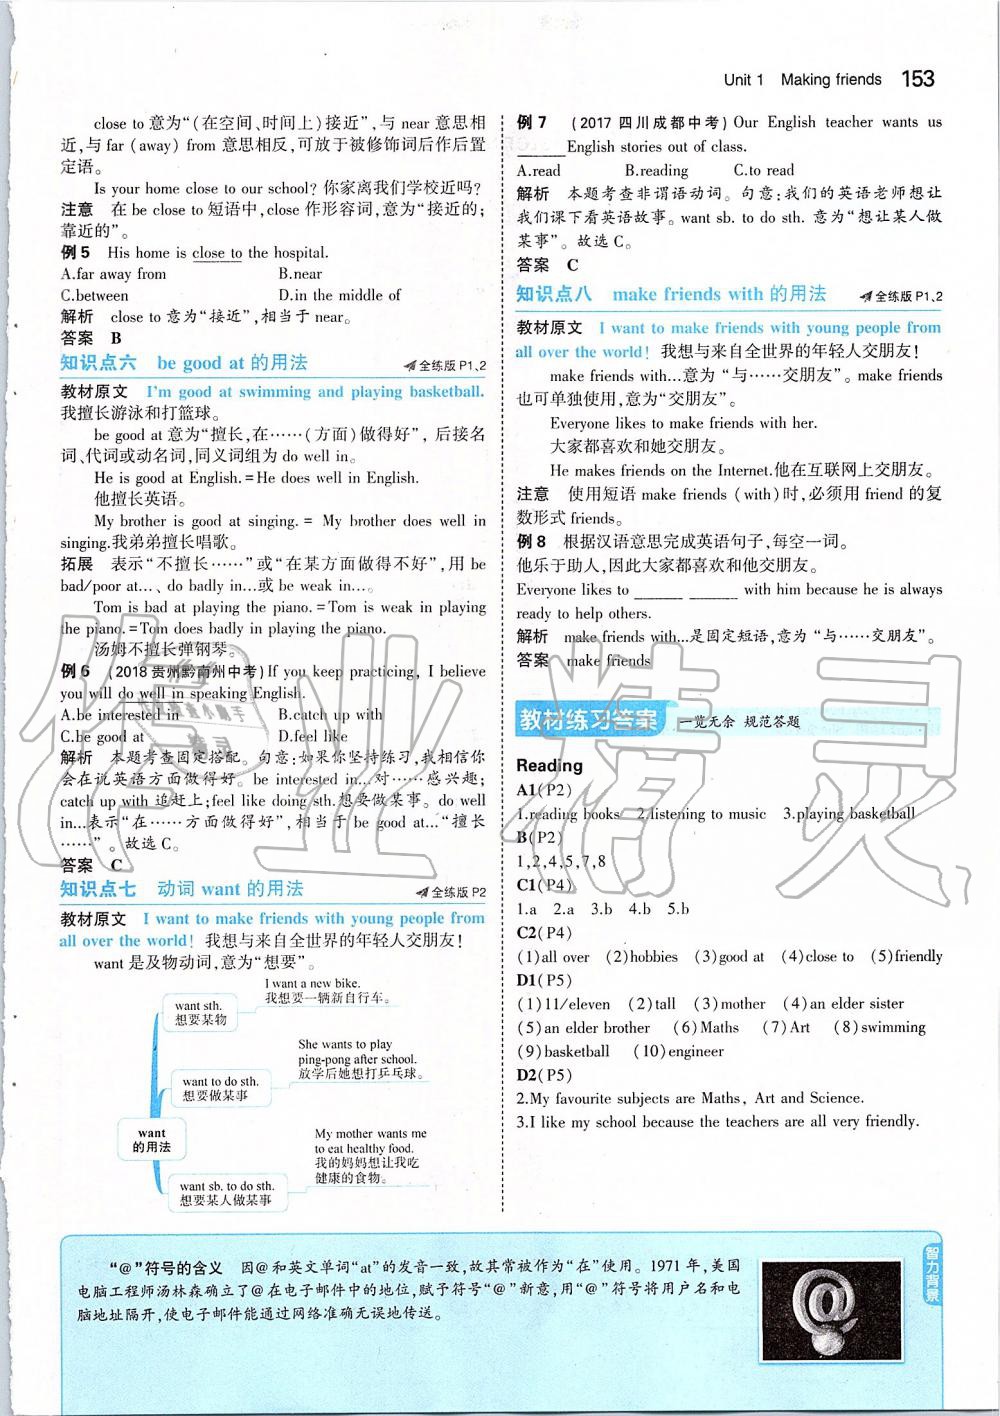 Unit 1 Making friends 153
close to 意为“(在空间、时间上)接近”,与 near 意思相
近,与 far (away) from 意思相反,可放于被修饰词后作后置
定语。
Is your home close to our school? 你家离我们学校近吗?
注意 在 be close to 短语中,close 作形容词,意为“接近的;
靠近的”。
例 5 His home is close to the hospital.
A.far away from B.near
C.between D.in the middle of
解析 close to 意为“接近”,相当于 near。
答案 B
知识点六 be good at 的用法 全练版 P1、2
教材原文 I'm good at swimming and playing basketball.
我擅长游泳和打篮球。
be good at 意为“擅长,在……(方面)做得好”, 后接名
词、代词或动名词,同义词组为 do well in。
He is good at English. = He does well in English.
他擅长英语。
My brother is good at singing. = My brother does well in
singing.我弟弟擅长唱歌。
拓展 表示“不擅长……”或“在某方面做得不好”,用 be
bad/poor at...、do badly in...或 be weak in...。
Tom is bad at playing the piano. = Tom is weak in playing
the piano. = Tom does badly in playing the piano.
汤姆不擅长弹钢琴。
例 6 (2018 贵州黔南州中考) If you keep practicing, I believe
you will do well in speaking English.
A.be interested in B.catch up with
C.be good at D.feel like
解析 本题考查固定搭配。句意:如果你坚持练习,我相信你
会在说英语方面做得好。be interested in...对……感兴趣;
catch up with 追赶上;feel like doing sth.想要做某事。do well
in...表示“在……方面做得好”,相当于 be good at...“擅长
……”。故选 C。
答案 C
知识点七 动词 want 的用法 全练版 P2
教材原文 I want to make friends with young people from
all over the world! 我想与来自全世界的年轻人交朋友!
want 是及物动词,意为“想要”。
want
的用法
want sth.
想要某物
I want a new bike.
我想要一辆新自行车。
want to do sth.
想要做某事
She wants to play
ping-pong after school.
放学后她想打乒乓球。
want sb. to do sth.
想要某人做某事
My mother wants me
to eat healthy food.
我的妈妈想让我吃
健康的食物。
例 7 (2017 四川成都中考) Our English teacher wants us
______ English stories out of class.
A.read B.reading C.to read
解析 本题考查非谓语动词。句意:我们的英语老师想让
我们课下看英语故事。want sb. to do sth. 意为“想让某人做
某事”。故选 C。
答案 C
知识点八 make friends with 的用法 全练版 P1、2
教材原文 I want to make friends with young people from
all over the world! 我想与来自全世界的年轻人交朋友!
make friends with...意为 “与……交朋友”。make friends
也可单独使用,意为“交朋友”。
Everyone likes to make friends with her.
大家都喜欢和她交朋友。
He makes friends on the Internet.他在互联网上交朋友。
注意 使用短语 make friends (with)时,必须用 friend 的复
数形式 friends。
例 8 根据汉语意思完成英语句子,每空一词。
他乐于助人,因此大家都喜欢和他交朋友。
Everyone likes to ______ ______ with him because he is always
ready to help others.
解析 make friends with...是固定短语,意为 “与……交朋友”。
答案 make friends
教材练习答案 一览无余 规范答题
Reading
A1(P2)
1.reading books 2.listening to music 3.playing basketball
B(P2)
1,2,4,5,7,8
C1(P4)
1.a 2.a 3.b 4.b 5.b
C2(P4)
(1)all over (2)hobbies (3)good at (4)close to (5)friendly
D1(P5)
(1)11/eleven (2)tall (3)mother (4)an elder sister
(5)an elder brother (6)Maths (7)Art (8)swimming
(9)basketball (10)engineer
D2(P5)
2.My favourite subjects are Maths, Art and Science.
3.I like my school because the teachers are all very friendly.
“@”符号的含义 因@和英文单词“at”的发音一致,故其常被作为“在”使用。1971 年,美国
电脑工程师汤林森确立了@在电子邮件中的地位,赋予符号“@”新意,用“@”符号将用户名和电
脑地址隔开,使电子邮件能通过网络准确无误地传送。
智力背景
@
作业精灵